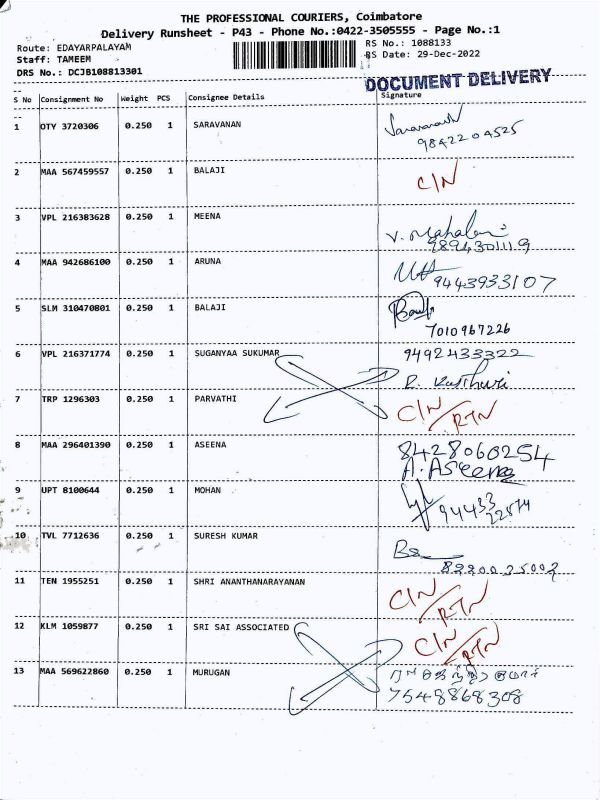 THE PROFESSIONAL COURIERS, Coimbatore
Delivery Runsheet - P43 - Phone No.:0422-3505555 - Page No.:1
Route: EDAYARPALAYAM
Staff: TAMEEM
DRS No.: DCJB108813301
RS No.: 1088133
RS Date: 29-Dec-2022
DOCUMENT DELIVERY
S No Consignment No Weight PCS Consignee Details Signature
1 OTY 3720306 0.250 1 SARAVANAN
9842204525
2 MAA 567459557 0.250 1 BALAJI C/N
3 VPL 216383628 0.250 1 MEENA V. Mahalaxmi
9894301119
4 MAA 942686100 0.250 1 ARUNA 9443933107
5 SLM 310470801 0.250 1 BALAJI
7010967226
6 VPL 216371774 0.250 1 SUGANYAA SUKUMAR 9492433322
R. Kasthuri
7 TRP 1296303 0.250 1 PARVATHI C/N/RTN
8 MAA 296401390 0.250 1 ASEENA 8428060254
A. Aseena
9 UPT 8100644 0.250 1 MOHAN 94433
22574
10 TVL 7712636 0.250 1 SURESH KUMAR
8220035002
11 TEN 1955251 0.250 1 SHRI ANANTHANARAYANAN C/N/RTN
12 KLM 1059877 0.250 1 SRI SAI ASSOCIATED C/N/RTN
13 MAA 569622860 0.250 1 MURUGAN
7548868308